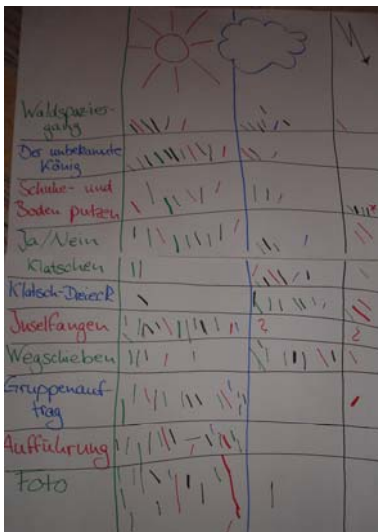 Waldspazier-
gang
Der unbekannte
König
Schuhe- und
Boden putzen
Ja/Nein
Klatschen
Klatsch-Dreieck
Juselfangen
?
?
Wegschieben
Gruppenauf-
trag
Aufführung
Foto